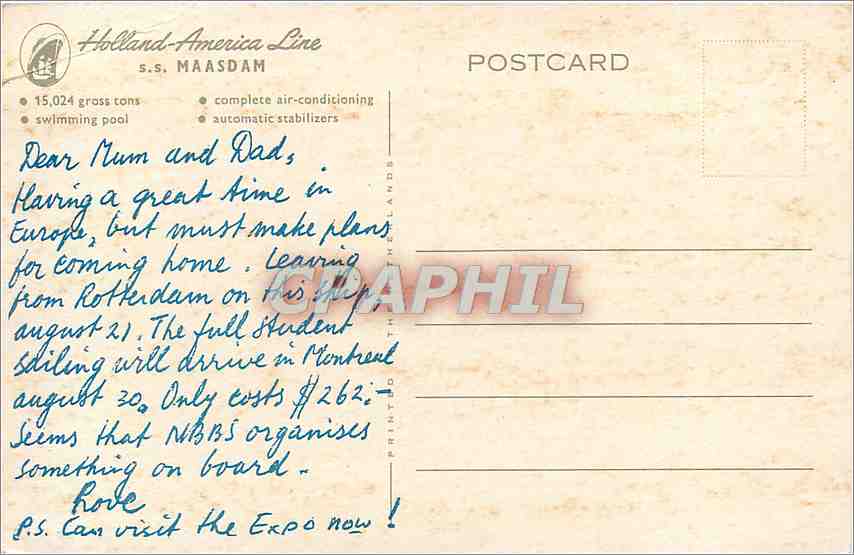 Holland-America Line
s.s. MAASDAM
• 15,024 gross tons
• complete air-conditioning
• swimming pool
• automatic stabilizers
POSTCARD
Dear Mum and Dad,
Having a great time in
Europe, but must make plans
for coming home. Leaving
from Rotterdam on this ship,
august 21. The full student
sailing will arrive in Montreal
august 30. Only costs $262.-
Seems that NBBS organises
something on board.
Love
P.S. Can visit the Expo now!
PRINTED IN THE NETHERLANDS
CPAPHIL